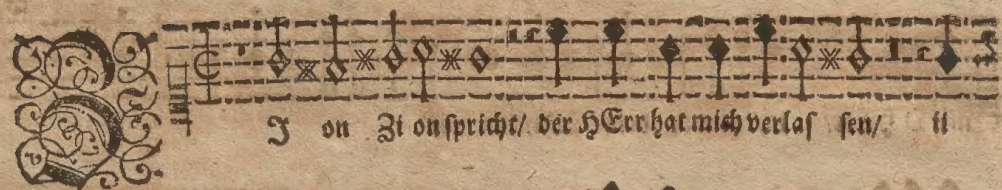 ZJ on Zi on spricht/ der HErr hat mich verlas sen/ ii